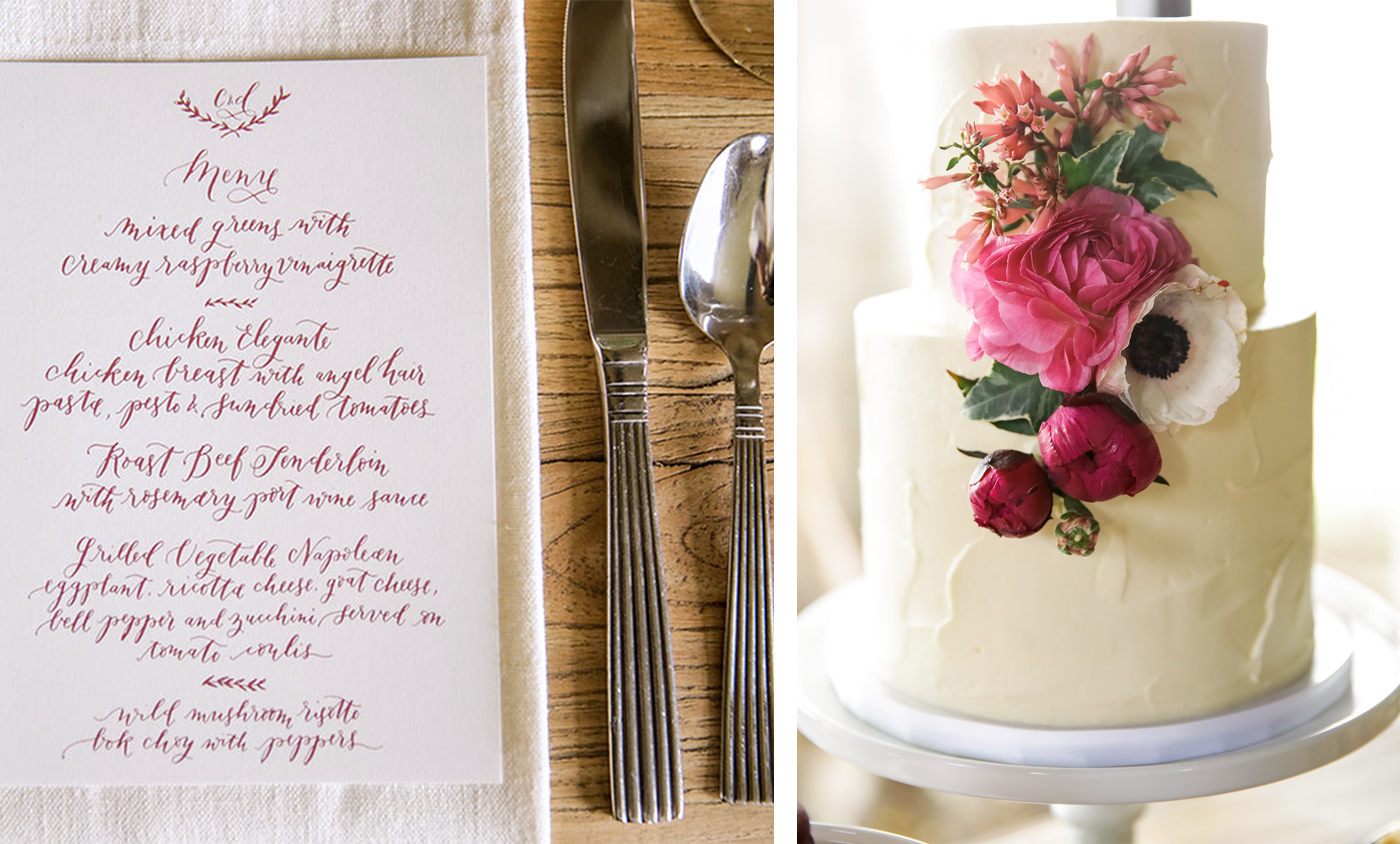 c&d
Menu
mixed greens with
creamy raspberry vinaigrette
Chicken Elegante
chicken breast with angel hair
pasta, pesto & sundried tomatoes
Roast Beef Tenderloin
with rosemary port wine sauce
Grilled Vegetable Napolean
eggplant, ricotta cheese, goat cheese,
bell pepper and zucchini, served on
tomato coulis
wild mushroom risotto
bok choy with peppers